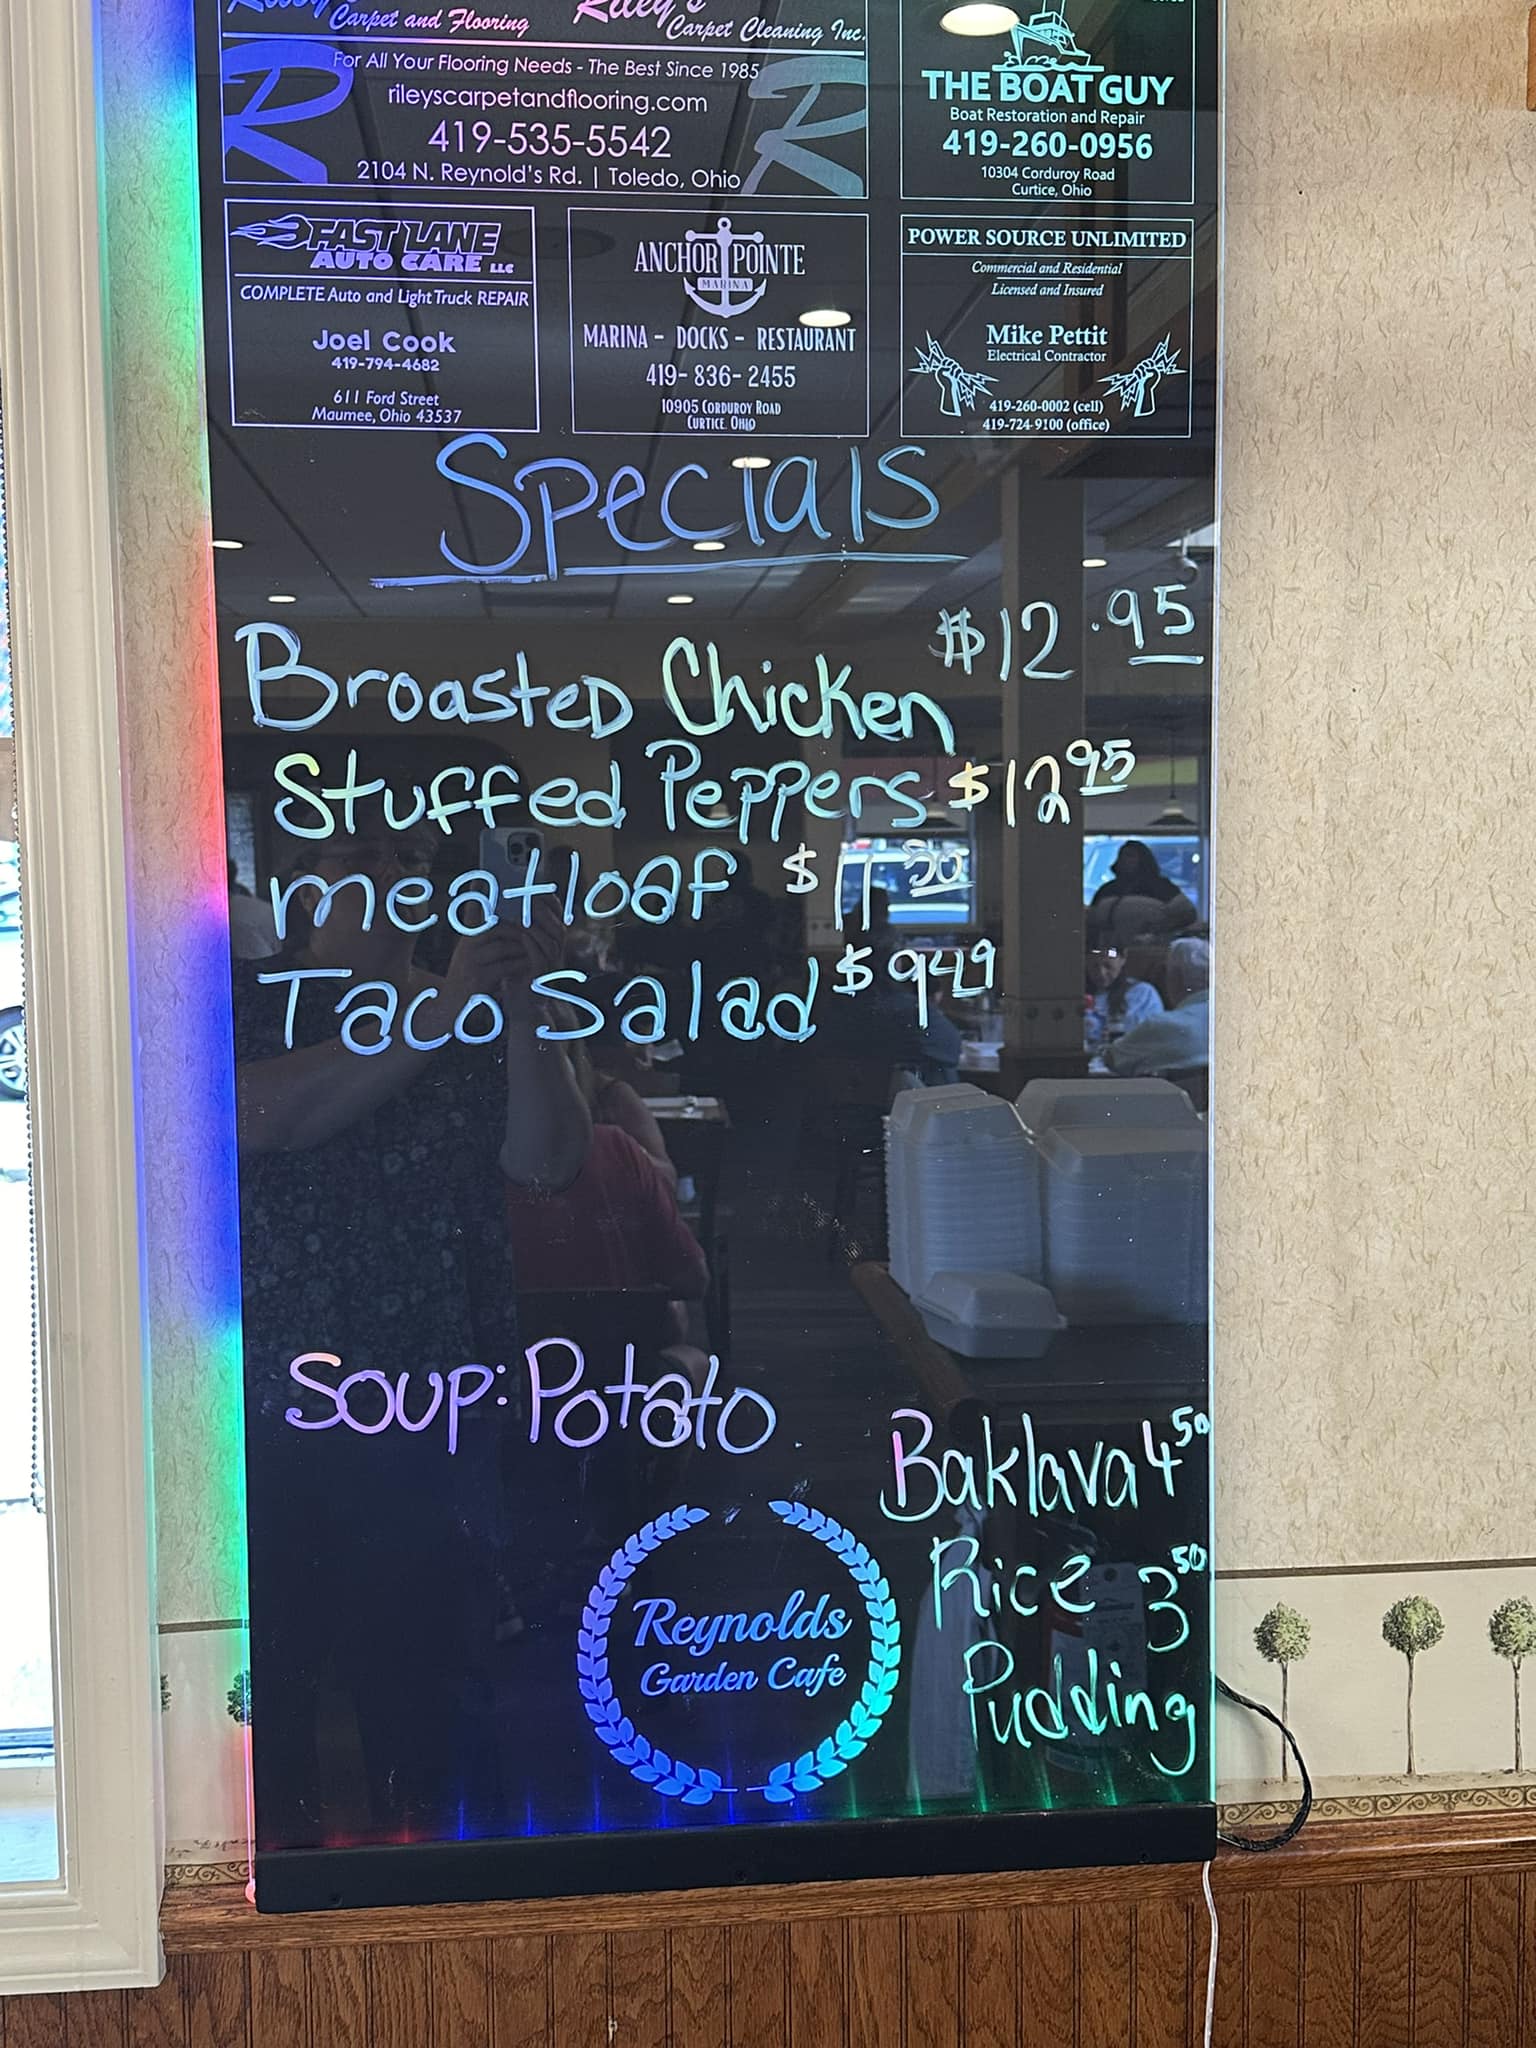 Riley's
Carpet and Flooring
Riley's
Carpet Cleaning Inc.
For All Your Flooring Needs - The Best Since 1985
rileyscarpetandflooring.com
419-535-5542
2104 N. Reynold's Rd. | Toledo, Ohio
THE BOAT GUY
Boat Restoration and Repair
419-260-0956
10304 Corduroy Road
Curtice, Ohio
FAST LANE
AUTO CARE LLC
COMPLETE Auto and Light Truck REPAIR
Joel Cook
419-794-4682
611 Ford Street
Maumee, Ohio 43537
ANCHOR POINTE
MARINA
MARINA - DOCKS - RESTAURANT
419-836-2455
10905 CORDUROY ROAD
CURTICE, OHIO
POWER SOURCE UNLIMITED
Commercial and Residential
Licensed and Insured
Mike Pettit
Electrical Contractor
419-260-0002 (cell)
419-724-9100 (office)
Specials
Broasted Chicken $12.95
Stuffed Peppers $12 95
meatloaf $11 50
Taco Salad $9 49
Soup: Potato
Baklava 4 50
Rice 3 50
Pudding
Reynolds
Garden Cafe